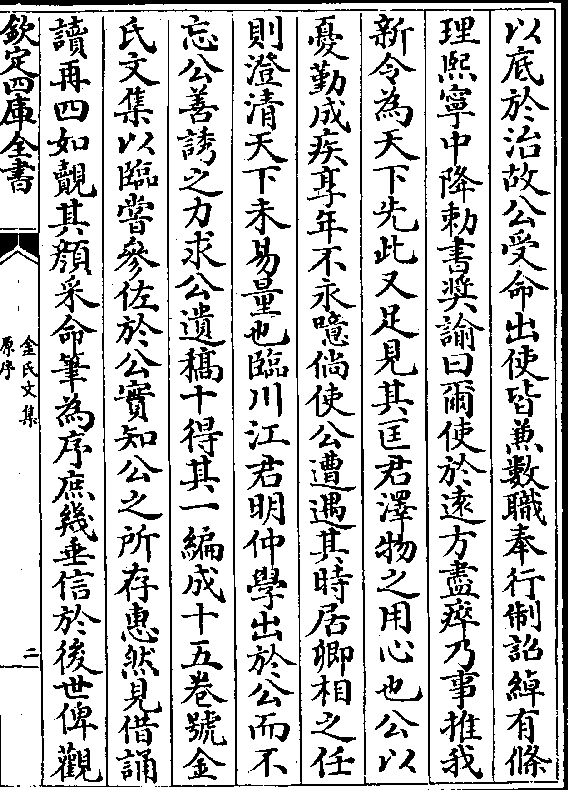 以底於治故公受命出使皆兼數職奉行制詔綽有條
理熙寧中降勅書奬諭曰爾使於逺方盡瘁乃事推我
新令為天下先此又足見其匡君澤物之用心也公以
憂勤成疾享年不永噫倘使公遭遇其時居卿相之任
則澄清天下未易量也臨川江君明仲學出於公而不
忘公善誘之力求公遺稿十得其一編成十五卷號金
氏文集以臨嘗參佐於公實知公之所存惠然見借誦
讀再四如覿其顔采命筆為序庶幾垂信於後世俾觀
欽定四庫全書
金氏文集
原序
二